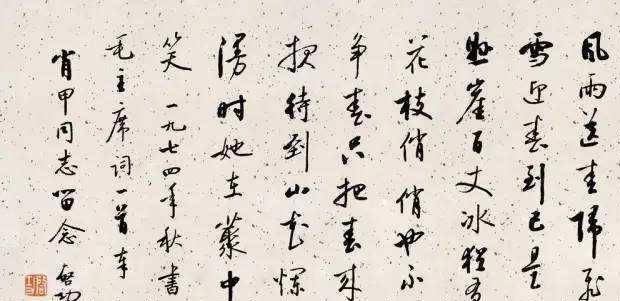 風雨送春歸飛
雪迎春到已是
懸崖百丈冰猶有
花枝俏俏也不
争春只把春來
報待到山花爛
漫时她在叢中
笑 一九七四年秋書
毛主席词一首奉
肖甲同志留念 启功